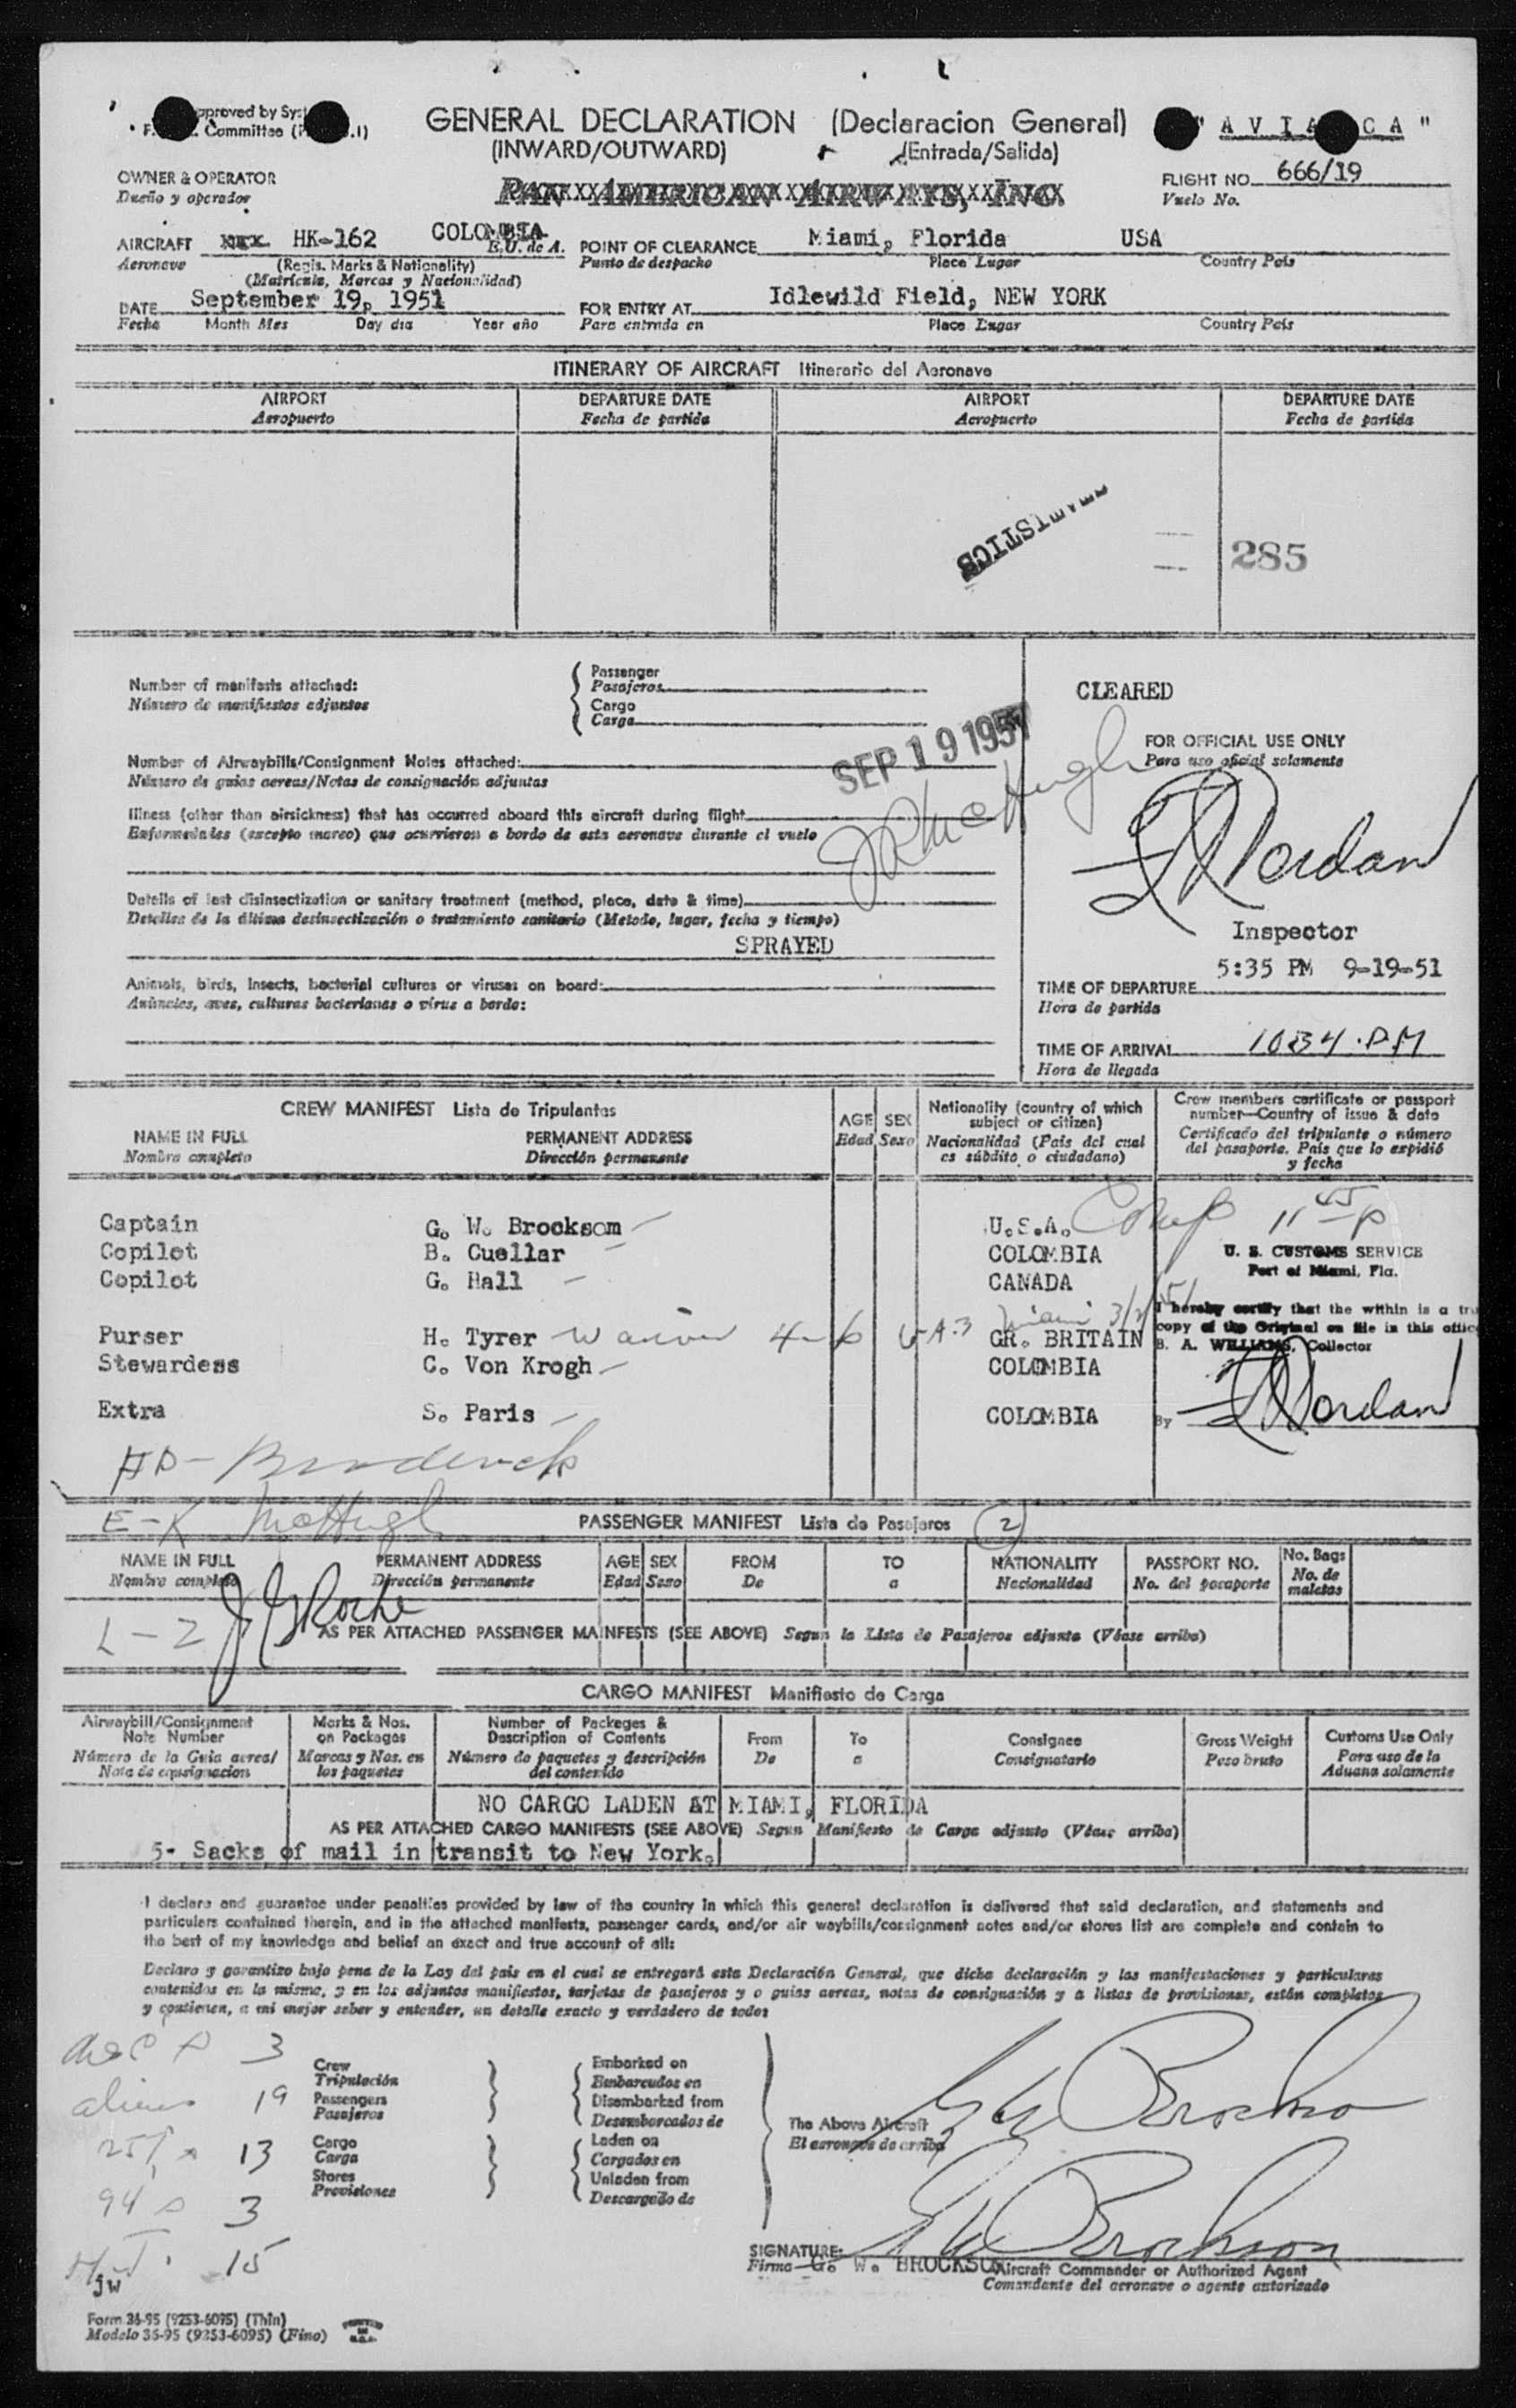 GENERAL DECLARATION (Declaracion General) " AVIA CA "
(INWARD/OUTWARD) (Entrada/Salida)
approved by
Committee
OWNER & OPERATOR
Dueño y operador
PAN AMERICAN AIRWAYS, INC
FLIGHT NO. 666/19
Vuelo No.
AIRCRAFT HK-162 COLOMBIA
E.U. de A.
Aeronave (Regis. Marks & Nationality)
(Matricula, Marcas y Nacionalidad)
POINT OF CLEARANCE Miami, Florida USA
Punto de despacho Place Lugar Country País
DATE September 19, 1951
Fecha Month Mes Day dia Year año
FOR ENTRY AT Idlewild Field, NEW YORK
Para entrada en Place Lugar Country País
ITINERARY OF AIRCRAFT Itinerario del Aeronave
AIRPORT DEPARTURE DATE AIRPORT DEPARTURE DATE
Aeropuerto Fecha de partida Aeropuerto Fecha de partida
STATISTICS
285
Number of manifests attached:
Número de manifiestos adjuntos
Passenger
Pasajeros
Cargo
Carga
CLEARED
SEP 19 1951
FOR OFFICIAL USE ONLY
Para uso oficial solamente
Number of Airwaybills/Consignment Notes attached:
Número de guias aereas/Notas de consignación adjuntas
Illness (other than airsickness) that has occurred aboard this aircraft during flight
Enfermedades (excepto mareo) que ocurrieron a bordo de esta aeronave durante el vuelo
J R McHugh
Jordan
Details of last disinsectization or sanitary treatment (method, place, date & time)
Detalles de la última desinsectización o tratamiento sanitario (Metodo, lugar, fecha y tiempo)
SPRAYED
Inspector
5:35 PM 9-19-51
Animals, birds, insects, bacterial cultures or viruses on board:
Animales, aves, culturas bacterianas o virus a bordo:
TIME OF DEPARTURE
Hora de partida
TIME OF ARRIVAL 1034 PM
Hora de llegada
CREW MANIFEST Lista de Tripulantes
NAME IN FULL PERMANENT ADDRESS
Nombre completo Dirección permanente
AGE SEX
Edad Sexo
Nationality (country of which
subject or citizen)
Nacionalidad (País del cual
es súbdito o ciudadano)
Crew members certificate or passport
number—Country of issue & date
Certificado del tripulante o número
del pasaporte. País que lo expidió
y fecha
Captain G. W. Brocksom U.S.A.
Copilot B. Cuellar COLOMBIA
Copilot G. Hall CANADA
Purser H. Tyrer GR. BRITAIN
Stewardess C. Von Krogh COLOMBIA
Extra S. Paris COLOMBIA
U. S. CUSTOMS SERVICE
Port of Miami, Fla.
I hereby certify that the within is a tru
copy of the Original on file in this offic
B. A. WILLIAMS, Collector
By Jordan
E-K McHugh
PASSENGER MANIFEST Lista de Pasajeros 2
NAME IN FULL PERMANENT ADDRESS AGE SEX FROM TO NATIONALITY PASSPORT NO. No. Bags
Nombre completo Dirección permanente Edad Sexo De a Nacionalidad No. del pasaporte No. de
maletas
L-2 Roche
AS PER ATTACHED PASSENGER MAINFESTS (SEE ABOVE) Segun la Lista de Pasajeros adjunta (Véase arriba)
CARGO MANIFEST Manifiesto de Carga
Airwaybill/Consignment
Note Number
Número de la Guia aerea/
Nota de consignacion
Marks & Nos.
on Packages
Marcas y Nos. en
los paquetes
Number of Packages &
Description of Contents
Número de paquetes y descripción
del contenido
From
De
To
a
Consignee
Consignatario
Gross Weight
Peso bruto
Customs Use Only
Para uso de la
Aduana solamente
NO CARGO LADEN AT MIAMI, FLORIDA
AS PER ATTACHED CARGO MANIFESTS (SEE ABOVE) Segun Manifiesto de Carga adjunto (Véase arriba)
5- Sacks of mail in transit to New York.
I declare and guarantee under penalties provided by law of the country in which this general declaration is delivered that said declaration, and statements and
particulars contained therein, and in the attached manifests, passenger cards, and/or air waybills/consignment notes and/or stores list are complete and contain to
the best of my knowledge and belief an exact and true account of all:
Declaro y garantizo bajo pena de la Ley del pais en el cual se entregará esta Declaración General, que dicha declaración y las manifestaciones y particulares
contenidos en la misma, y en los adjuntos manifiestos, tarjetas de pasajeros y o guias aereas, notas de consignación y a listas de provisiones, están completos
y contienen, a mi mejor saber y entender, un detalle exacto y verdadero de todo:
3
aliens 19
13
94 3
15
Crew
Tripulación
Passengers
Pasajeros
Cargo
Carga
Stores
Provisiones
Embarked on
Embarcados en
Disembarked from
Desembarcados de
Laden on
Cargados en
Unladen from
Descargado de
The Above Aircraft
El aeronave de arriba
SIGNATURE:
Firma G. W. BROCKSOM
Aircraft Commander or Authorized Agent
Comandante del aeronave o agente autorizado
jw
Form 36-95 (9253-6095) (Thin)
Modelo 36-95 (9253-6095) (Fino)
PRINTED
IN
U.S.A.